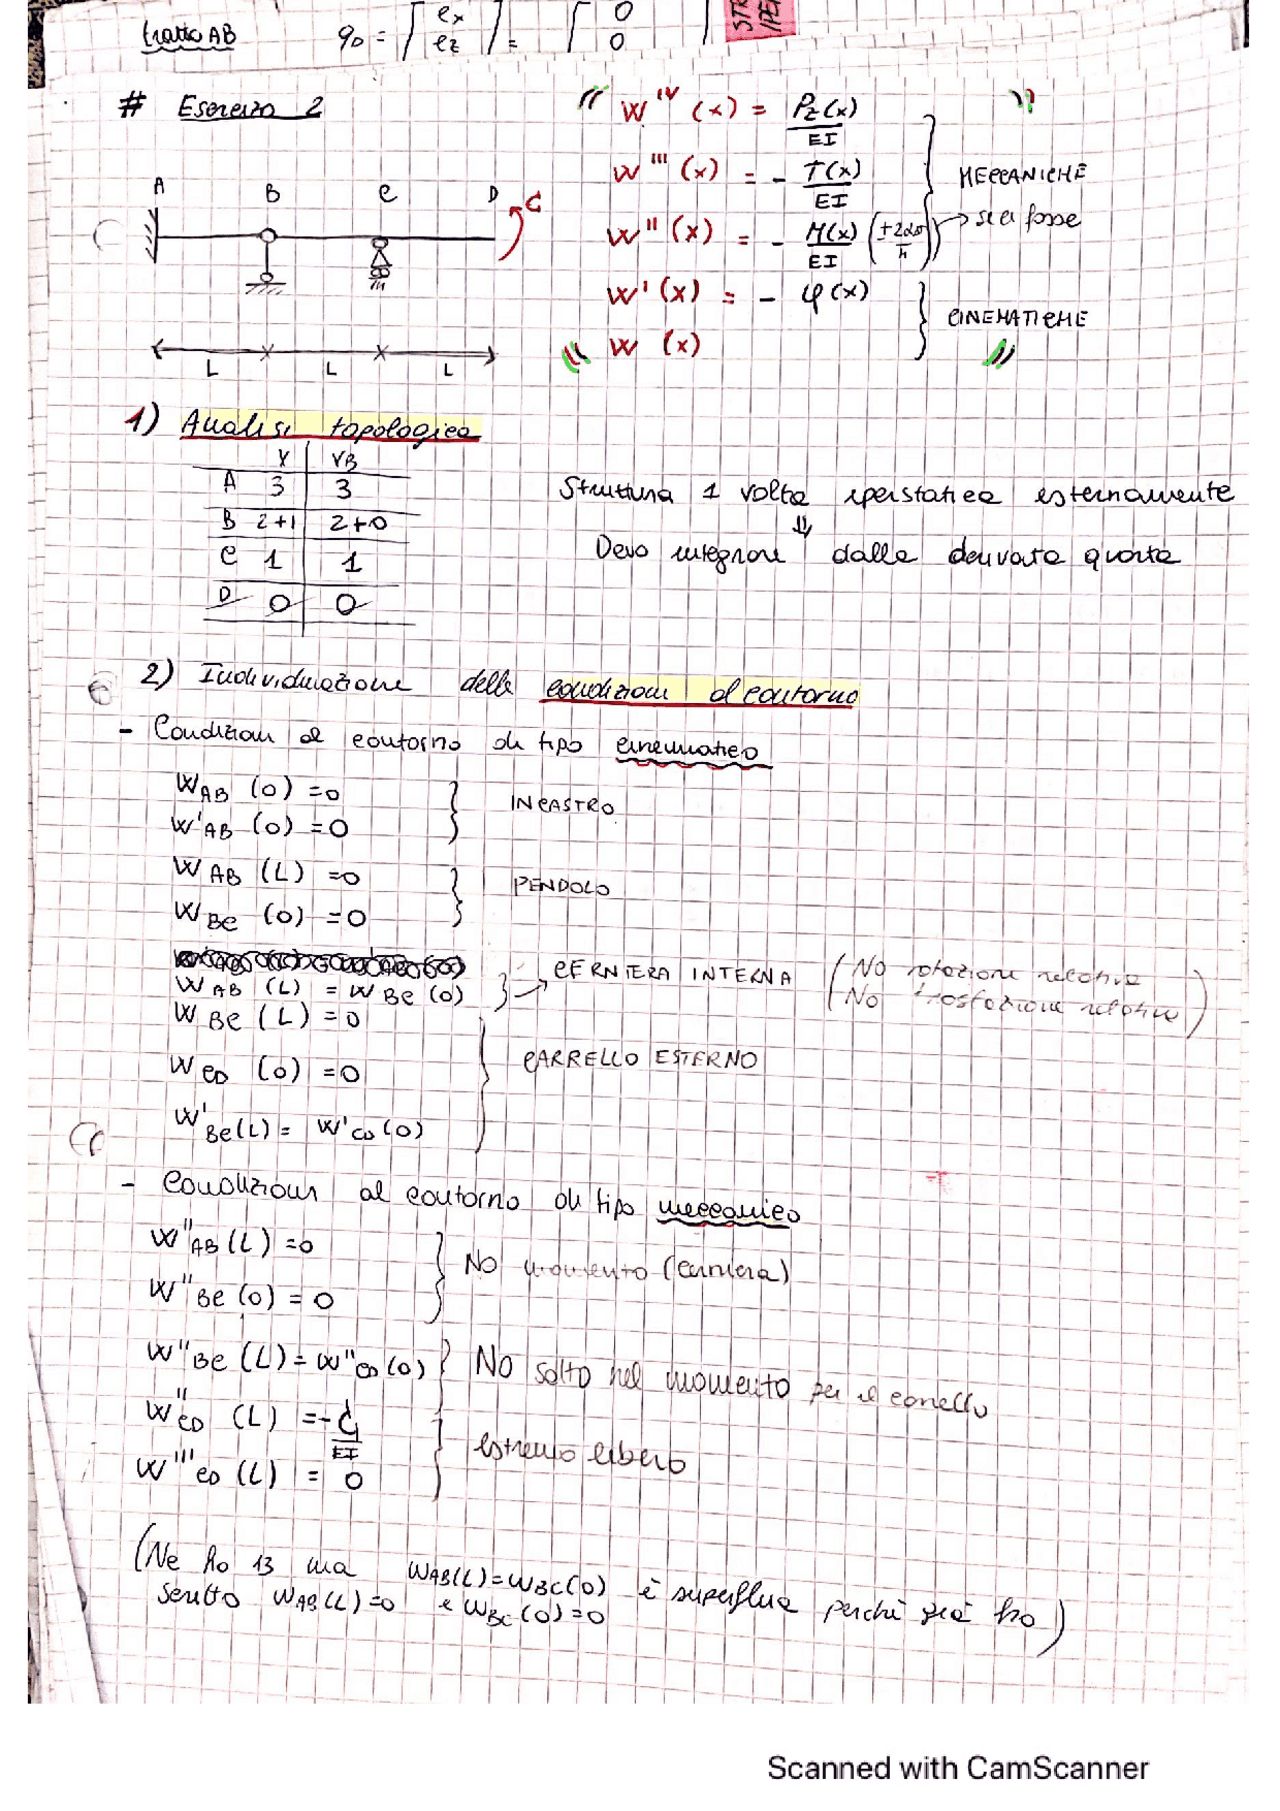 tratto AB q_D = [ e_x e_z ] = [ 0 0 ]
# Esercizio 2
" W^IV (x) = Pz(x)/EI "
W''' (x) = - T(x)/EI
MECCANICHE
W'' (x) = - M(x)/EI (± 2αΔT/h) → se ci fosse
W' (x) = - φ(x)
CINEMATICHE
" W (x) "
A B C D C
L L L
1) Analisi topologica
V VB
A 3 3
B 2+1 2+0
C 1 1
D 0 0
Struttura 1 volta iperstatica esternamente
⇓
Devo integrare dalla derivata quarta
2) Individuazione delle condizioni al contorno
- Condizioni al contorno di tipo cinematico
W_AB (0) = 0
W'_AB (0) = 0
INCASTRO
W_AB (L) = 0
W_BC (0) = 0
PENDOLO
W_AB (L) = W_BC (0) → CERNIERA INTERNA (No rotazione relativa
(No traslazione relativa)
W_BC (L) = 0
W_CD (0) = 0
CARRELLO ESTERNO
W'_BC (L) = W'_CD (0)
- Condizioni al contorno di tipo meccanico
W''_AB (L) = 0
W''_BC (0) = 0
No momento (cerniera)
W''_BC (L) = W''_CD (0) } No salto nel momento per il carrello
W''_CD (L) = - C/EI
W'''_CD (L) = 0
estremo libero
(Ne ho 13 ma W_AB(L) = W_BC(0) è superflua perché già ho
scritto W_AB(L) = 0 e W_BC(0) = 0)
Scanned with CamScanner